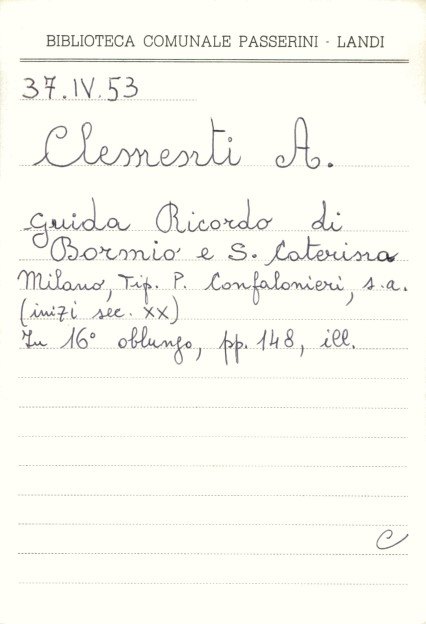 BIBLIOTECA COMUNALE PASSERINI - LANDI
37.IV.53
Clementi A.
Guida Ricordo di
Bormio e S. Caterina
Milano, Tip. P. Confalonieri, s.a.
(inizi sec. XX)
In 16° oblungo, pp. 148, ill.
C